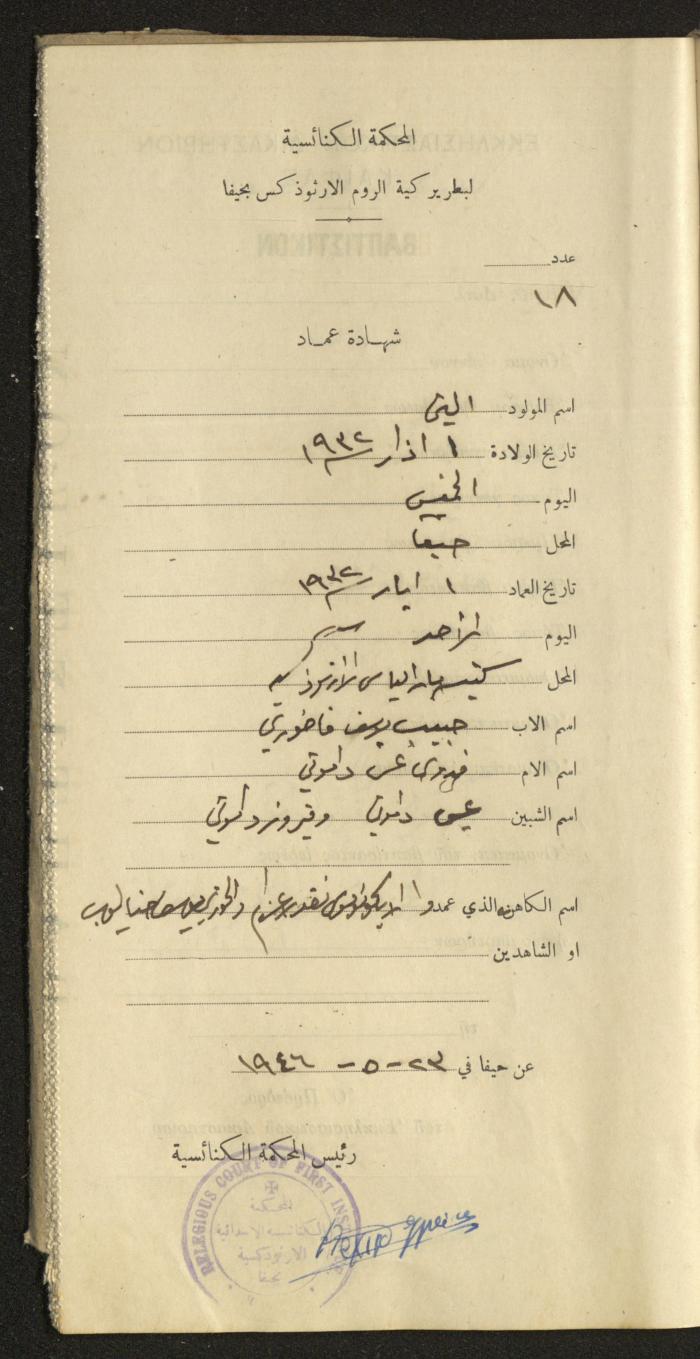 المحكمة الكنائسية
لبطريركية الروم الارثوذكس بحيفا
عدد
١٨
شهادة عماد
اسم المولود الين
تاريخ الولادة ١ اذار ١٩٣٢
اليوم الخميس
المحل حيفا
تاريخ العماد ١ ايار ١٩٣٢
اليوم الأحد
المحل كنيسة مار الياس الارثوذكسية
اسم الاب حبيب يوسف فاخوري
اسم الام داموني
اسم الشبين داموني وفيروز داموني
اسم الكاهن الذي عمدوا
او الشاهدين
عن حيفا في ٢٣-٥-١٩٤٦
رئيس المحكمة الكنائسية
RELEGIOUS COURT OF FIRST INS
المحكمة
الكنائسية الابتدائية
الارثوذكسية
بحيفا